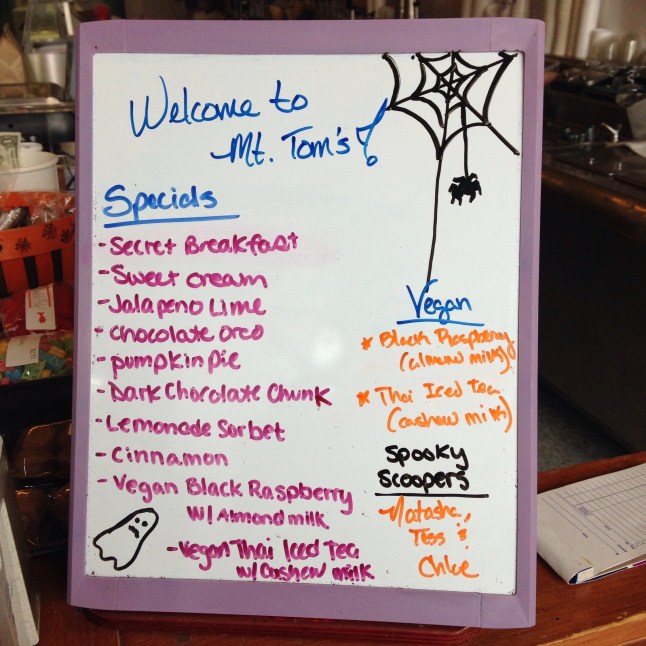 Welcome to
Mt. Tom's!
Specials
- Secret Breakfast
- Sweet cream
- Jalapeno Lime
- Chocolate Oreo
- pumpkin pie
- Dark Chocolate Chunk
- Lemonade Sorbet
- Cinnamon
- Vegan Black Raspberry
w/ Almond milk
- Vegan Thai Iced Tea
w/ Cashew milk
Vegan
* Black Raspberry
(almond milk)
* Thai Iced Tea
(cashew milk)
Spooky
Scoopers
Natasha,
Tess &
Chloe